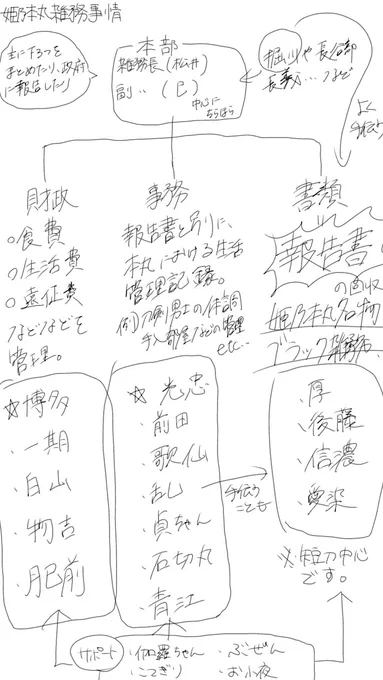 姫乃本丸雑務事情
主に下3つを
まとめたり、政府
に報告したり
本部
雑務長(松井)
副‥(巳)
中心に
ちらほら
堀川や長谷部
長義ふ…など
よく
手伝う
財政
○食費
○生活費
○遠征費
などなどを
管理。
☆博多
・一期
・白山
・物吉
・肥前
事務
報告書とは別に、
本丸における生活
管理記録。
例)刀剣男士の体調
手入部屋などの管理
etc…
☆光忠
・前田
・歌仙
・乱
・貞ちゃん
・石切丸
・青江
手伝う
ことも
書類
報告書
の回収
姫乃本丸名物
ブラック雑務
・厚
・後藤
・信濃
・愛染
※短刀中心
です。
サポート
・伽羅ちゃん
・こてぎり
・ぶぜん
・お小夜